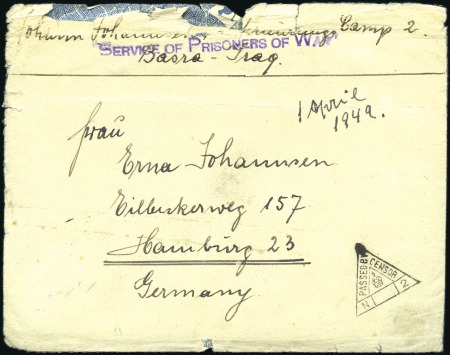 Johann Johannsen Internierungs Camp 2.
SERVICE OF PRISONERS OF WAR
Basra - Iraq.
1 April
1942.
Frau
Erna Johannsen
Eilbekerweg 157
Hamburg 23
Germany
PASSED BY
CENSOR
N 2